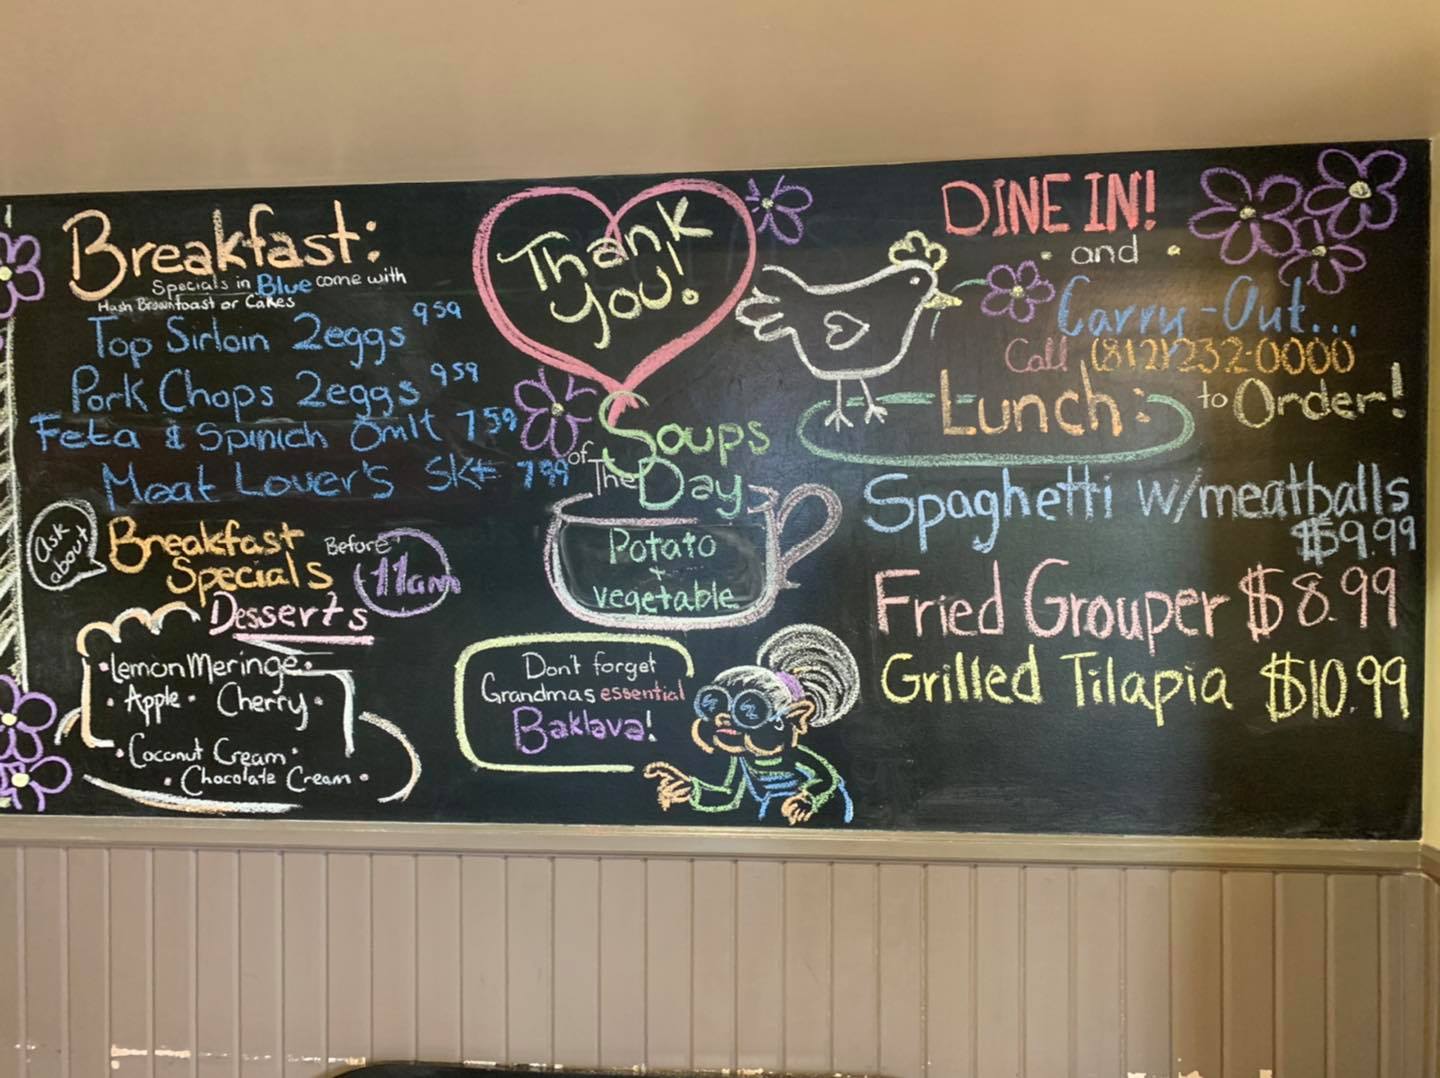 Breakfast:
Specials in Blue come with
Hash Brown toast or Cakes
Top Sirloin 2eggs 959
Pork Chops 2eggs 959
Feta & Spinich Omlt 759
Meat Lover's 799
Ask about
Breakfast Specials
Before 11am
Desserts
• Lemon Meringe •
• Apple • Cherry •
• Coconut Cream •
• Chocolate Cream •
Thank
You!
Soups
of The Day
Potato
+
vegetable
Don't forget
Grandmas essential
Baklava!
DINE IN!
• and •
Carry-Out...
Call (812)232-0000
to Order!
Lunch:
Spaghetti w/meatballs
$9.99
Fried Grouper $8.99
Grilled Tilapia $10.99